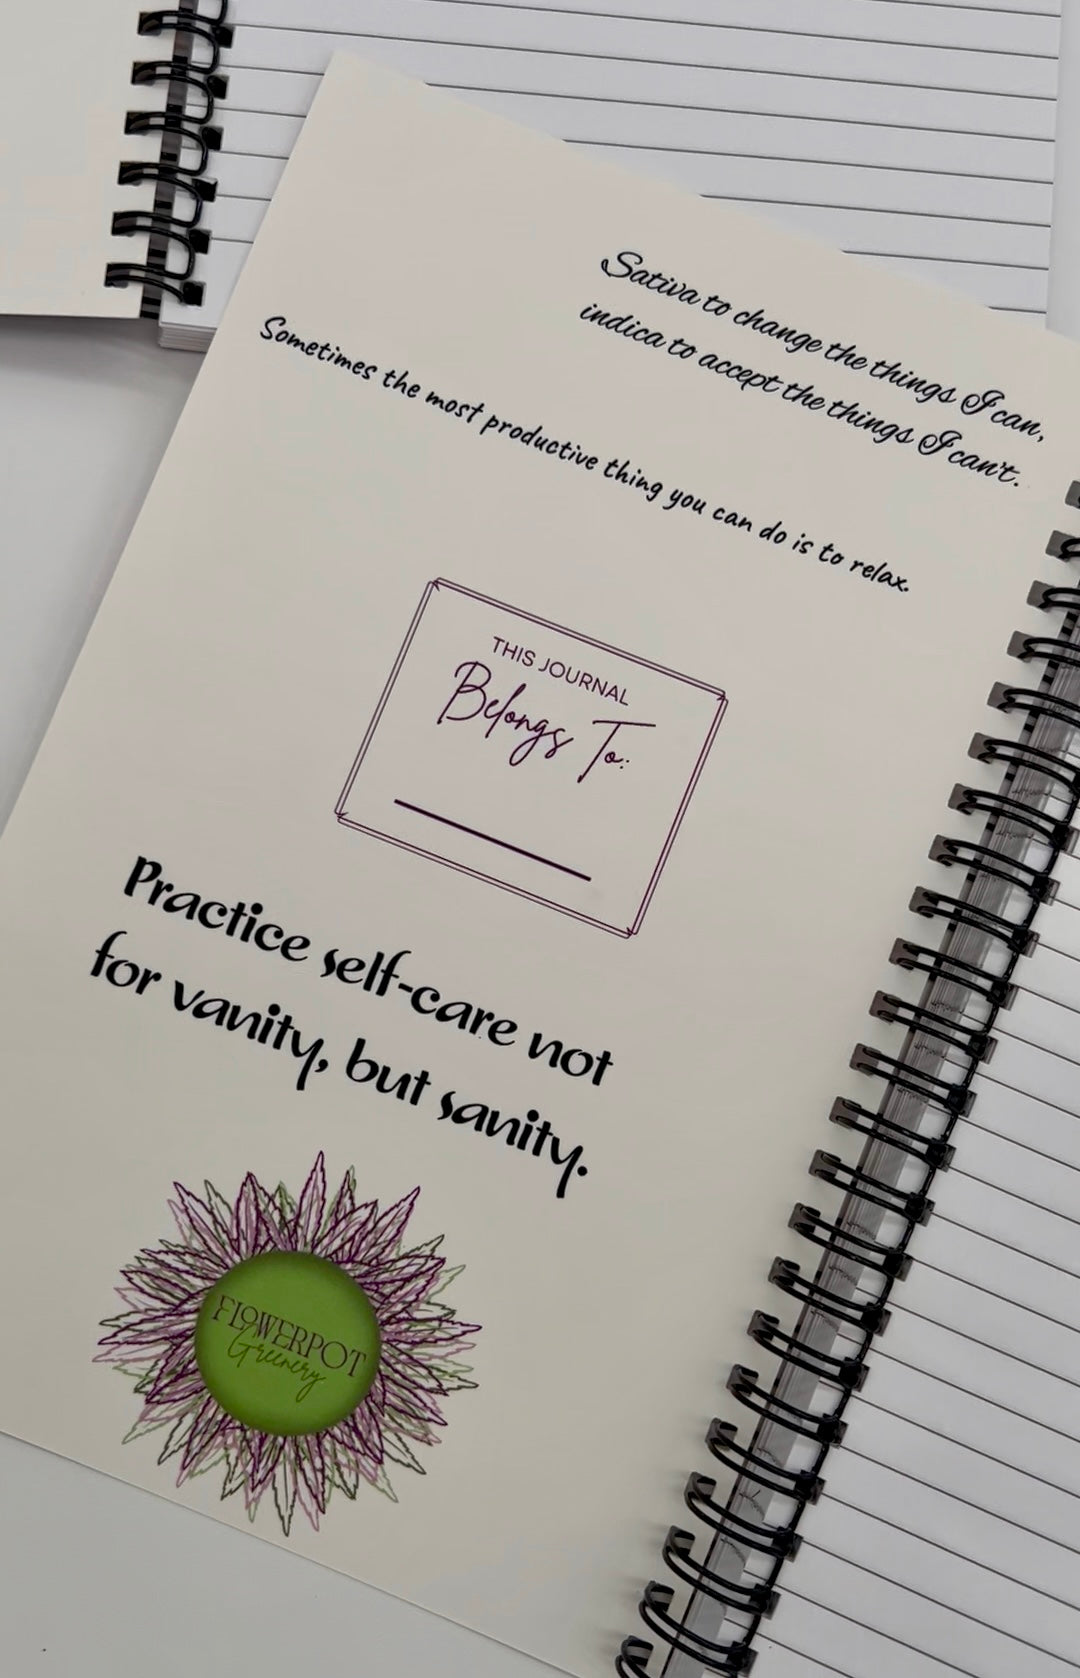 Sativa to change the things I can,
indica to accept the things I can't.
Sometimes the most productive thing you can do is to relax.
THIS JOURNAL
Belongs To:
Practice self-care not
for vanity, but sanity.
FLOWERPOT
Greenery